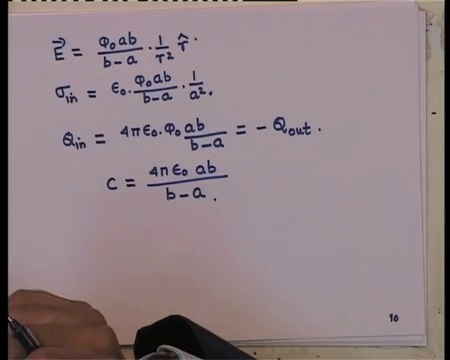 E⃗ = φ₀ab/(b-a) · 1/r² r̂.
σin = ε₀. φ₀ab/(b-a) · 1/a².
Qin = 4πε₀. φ₀ ab/(b-a) = - Qout.
C = 4πε₀ ab/(b-a).
10